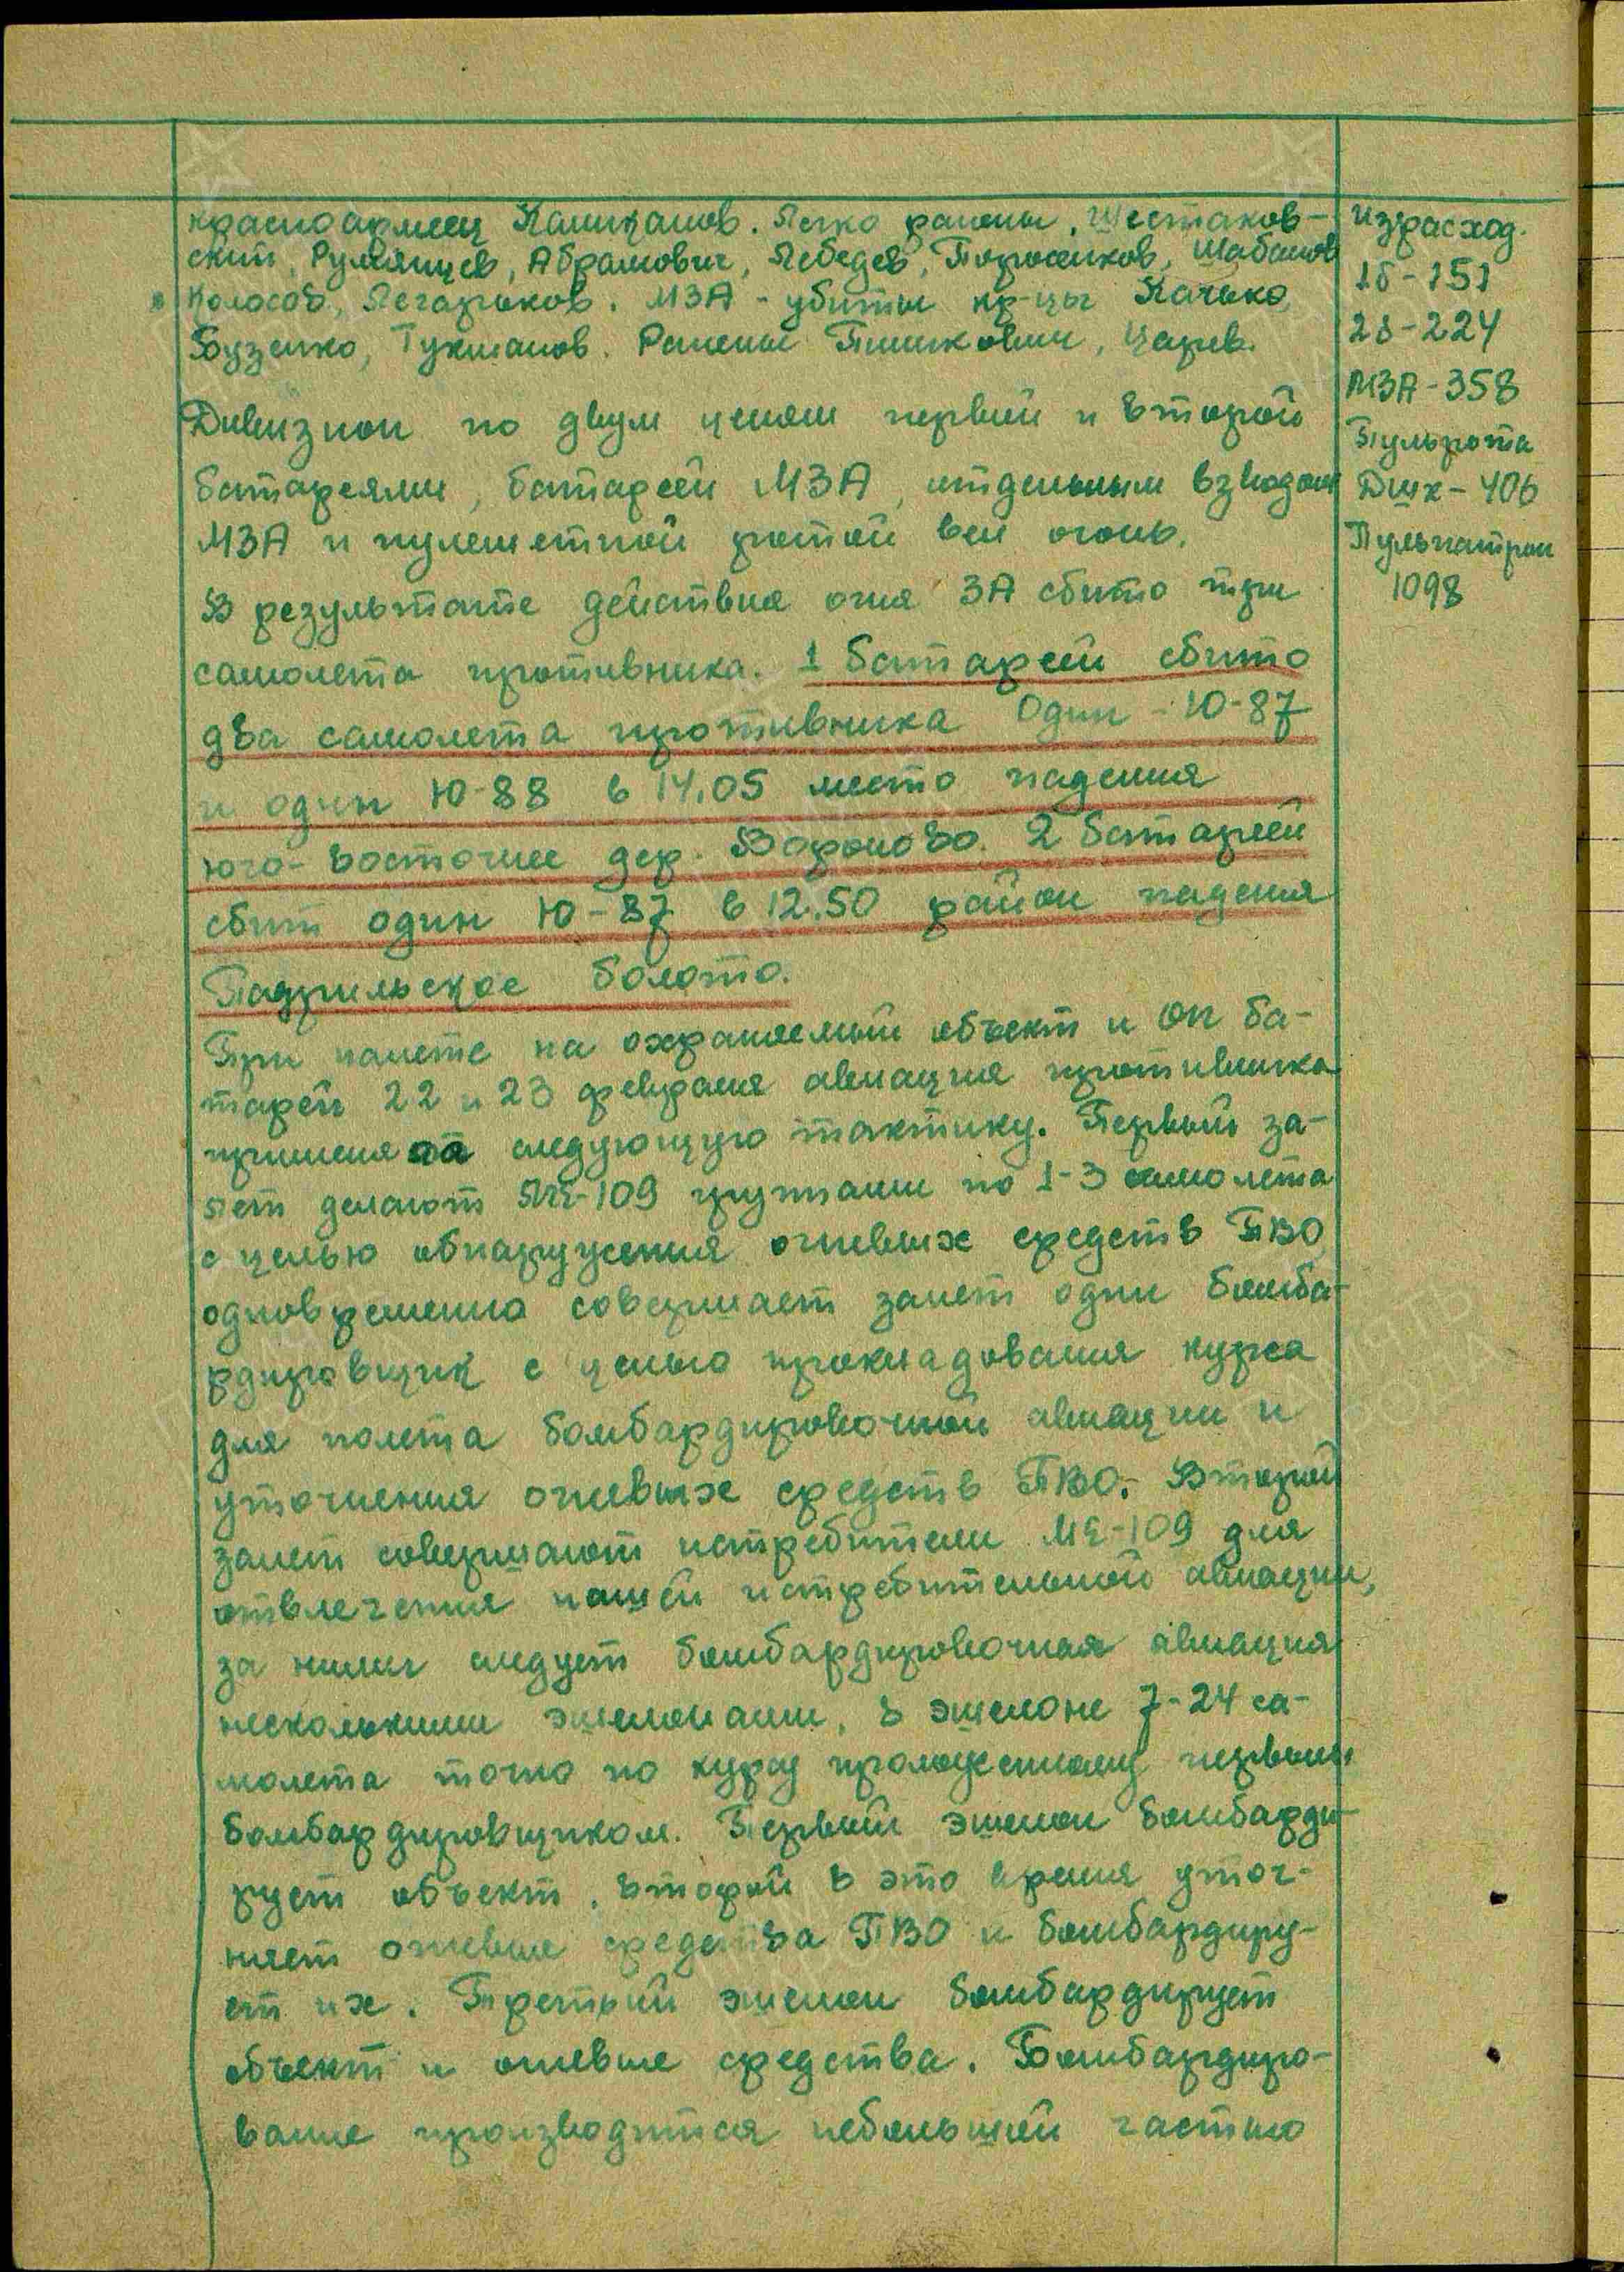 красноармеец Кашкапов. Легко ранены, Шестаков-
ский, Румянцев, Абрамович, Лебедев, Порошков, Шабанов
Колосов, Легарьков. МЗА - убиты кр-цы Качько,
Бузенко, Тухманов. Ранены Пишковин, Царев.
Дивизион по двум целям первой и второй
батареями, батареей МЗА, отдельным взводом
МЗА и пулеметной ротой вел огонь.
В результате действия огня ЗА сбито три
самолета противника. 1 батареей сбито
два самолета противника Один - Ю-87
и один Ю-88 в 14.05 место падения
юго-восточнее дер. Вороново. 2 батареей
сбит один Ю-87 в 12.50 район падения
болото.
При налете на охраняемый объект и ОП ба-
тарей 22 и 23 февраля авиация противника
применяла следующую тактику. Первый за-
лет делают МЕ-109 группами по 1-3 самолета
с целью обнаружения огневых средств ПВО,
одновременно совершает залет один бомба-
рдировщик с целью прокладования курса
для полета бомбардировочной авиации и
уточнения огневых средств ПВО. Второй
залет совершают истребители МЕ-109 для
отвлечения нашей истребительной авиации,
за ними следует бомбардировочная авиация
несколькими эшелонами, в эшелоне 7-24 са-
молета точно по курсу проложенному первым
бомбардировщиком. Первый эшелон бомбарди-
рует объект, второй в это время уточ-
няет огневые средства ПВО и бомбардиру-
ет их. Третий эшелон бомбардирует
объект и огневые средства. Бомбардиро-
вание производится небольшой частью
израсход.
1б-151
2б-224
МЗА-358
Пульрота
Дшк-406
Пульпатрон
1098